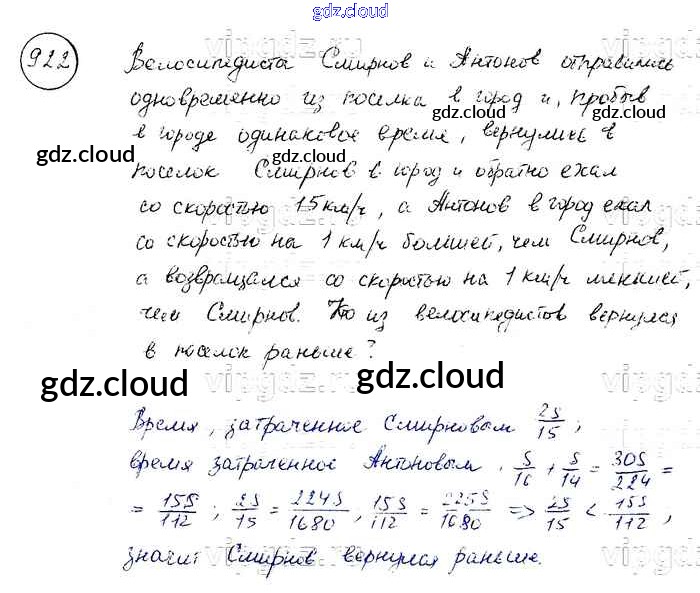 gdz.cloud
922
Велосипедисты Смирнов и Антонов отправились
одновременно из поселка в город и, пробыв
в городе одинаковое время, вернулись в
поселок Смирнов в город и обратно ехал
со скоростью 15 км/ч, а Антонов в город ехал
со скоростью на 1 км/ч большей, чем Смирнов,
а возвращался со скоростью на 1 км/ч меньшей,
чем Смирнов. Кто из велосипедистов вернулся
в поселок раньше?
gdz.cloud gdz.cloud
Время, затраченное Смирновым 2S/15;
время затраченное Антоновым, S/16 + S/14 = 30S/224 =
= 15S/112; 2S/15 = 224S/1680, 15S/112 = 225S/1680 => 2S/15 < 15S/112,
значит Смирнов вернулся раньше.